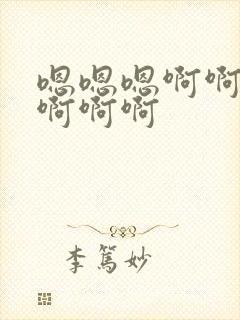 嗯嗯嗯啊啊
啊啊啊
李篤妙